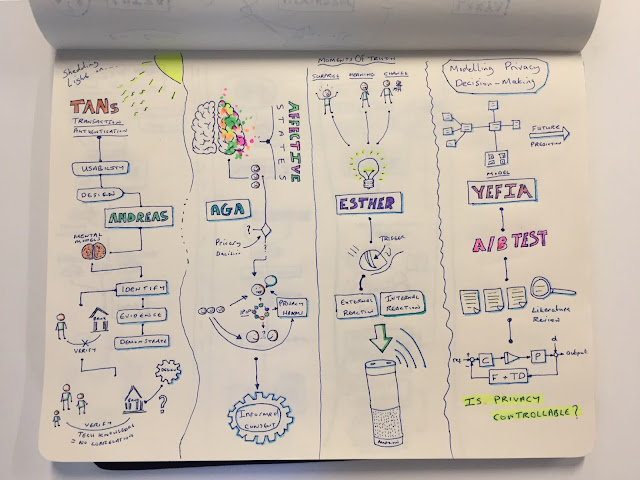 Shedding
Light on...
TANs
TRANSACTION
AUTHENTICATION
USABILITY
DESIGN
ANDREAS
MENTAL
MODELS
IDENTIFY
EVIDENCE
DEMONSTRATE
BANK
VERIFY
DESIGN
BANK
?
VERIFY
TECH KNOWLEDGE
= NO CORRELATION
AFFECTIVE
STATES
AGA
?
Privacy
Decision
PRIVACY
HARM
INFORMED
CONSENT
MOMENTS OF TRUTH
SURPRISE
MEANING
CHANGE
ESTHER
TRIGGER
EXTERNAL
REACTION
INTERNAL
REACTION
AMAZON
Modelling Privacy
Decision-Making
FUTURE
PREDICTION
MODEL
YEFIA
A/B TEST
Literature
Review
d
C
P
Output
F + TD
IS PRIVACY
CONTROLLABLE?